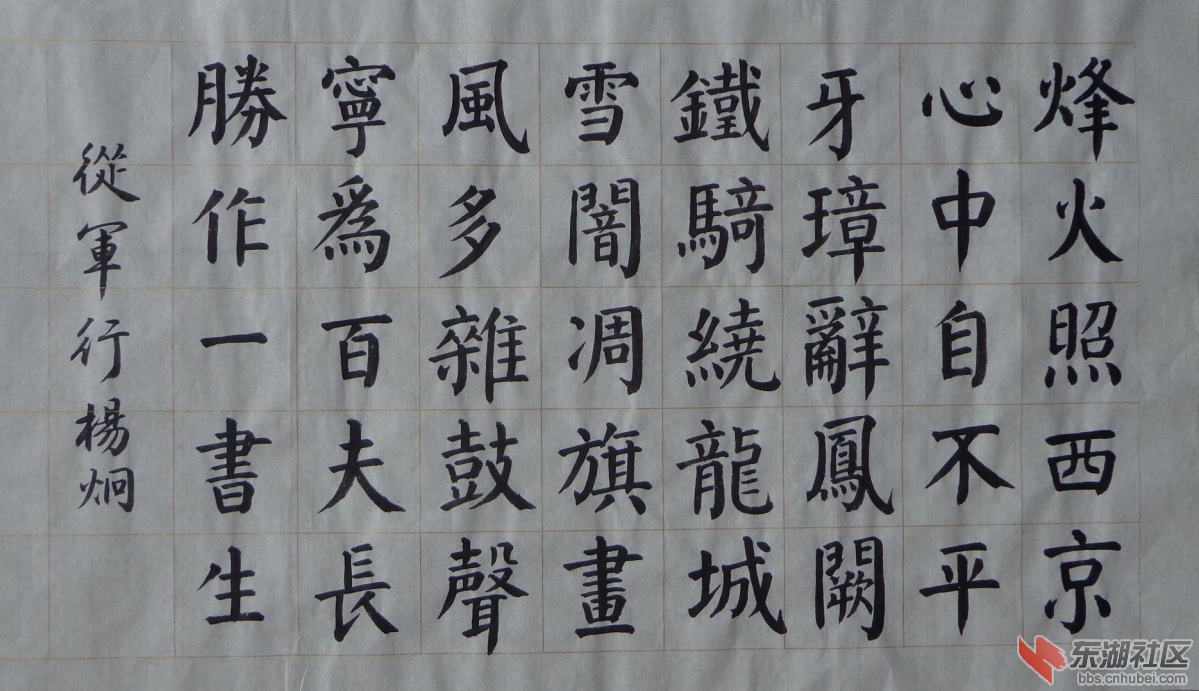 烽火照西京
心中自不平
牙璋辭鳳闕
鐵騎繞龍城
雪闇凋旗畫
風多雜鼓聲
寧為百夫長
勝作一書生
從軍行楊炯
东湖社区
bbs.cnhubei.com